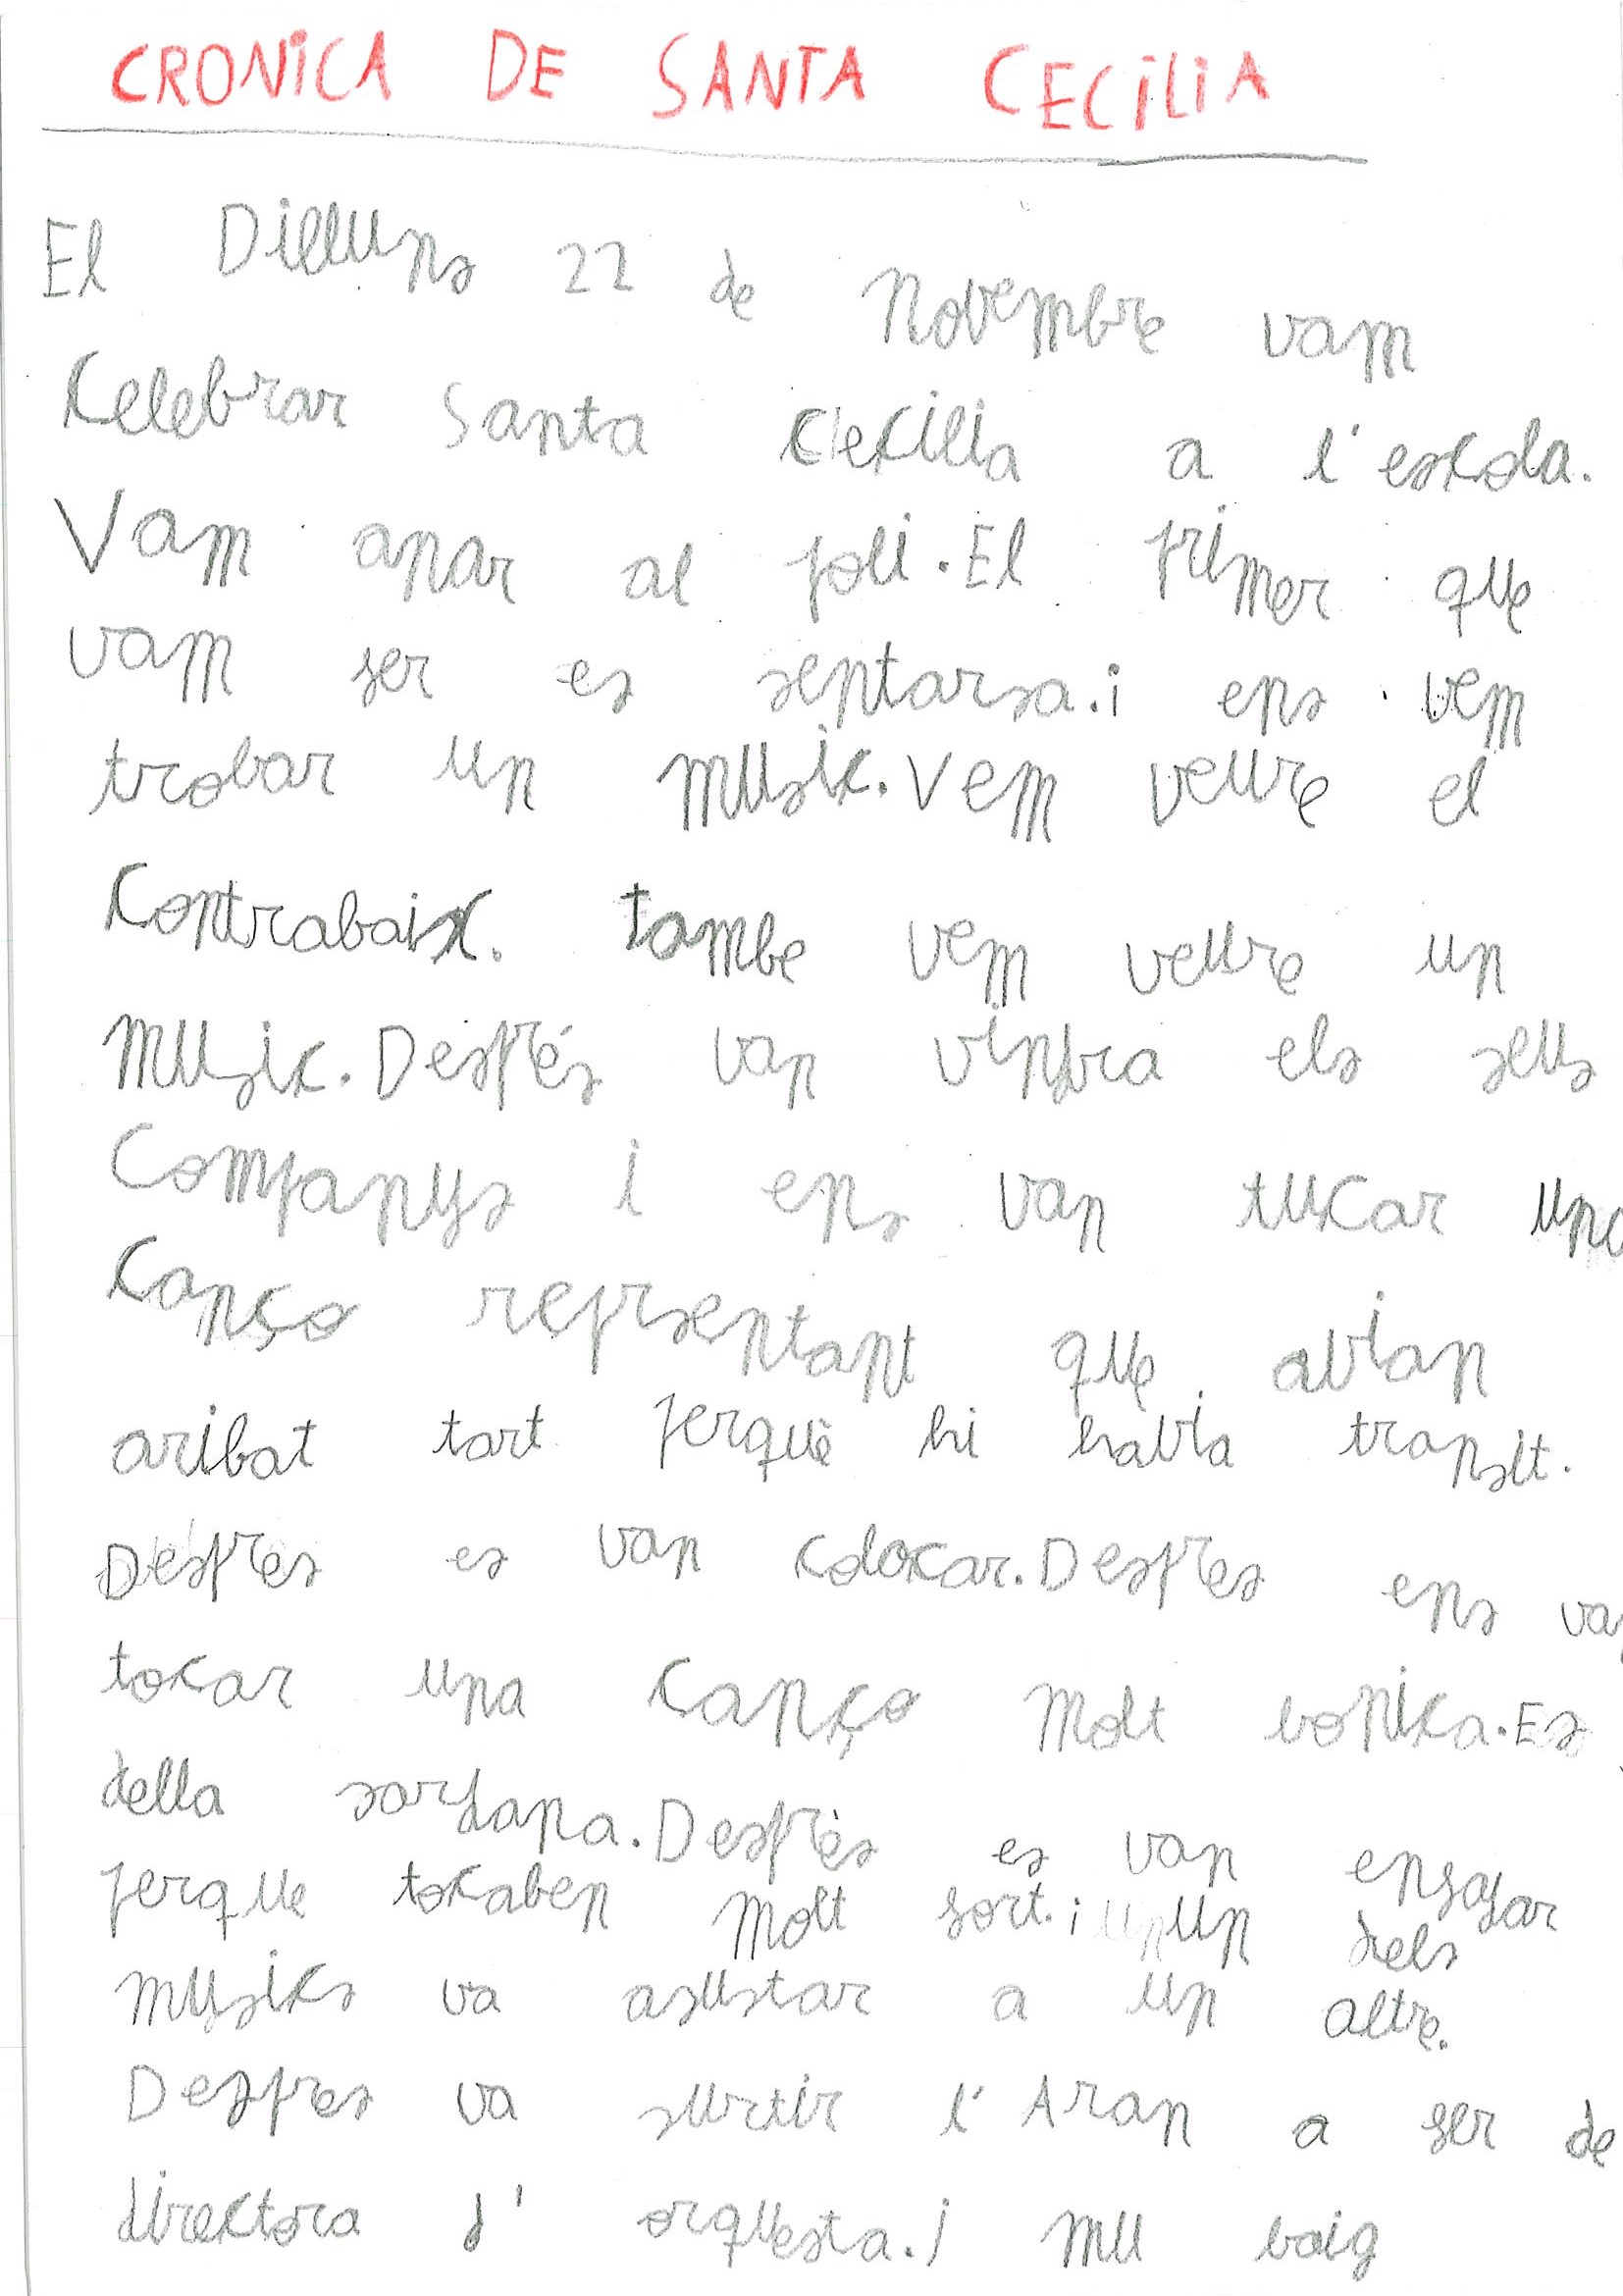 CRONiCA DE SANTA CECiLiA
El Dilluns 22 de novembre vam
Celebrar Santa Cecilia a l'escola.
Vam anar al poli. El primer que
vam fer es sentarsa. i ens vem
trobar un music. Vem veure el
Contrabaix. tambe vem veure un
music. Després van vindra els seus
Companys i ens van tucar una
Canço reprsentant que avian
aribat tart perquè hi havia transit.
Despres es van colocar. Despres ens van
tocar una Canço molt bonica. Es
della sardana. Desprès es van enfafar
perque tocaben molt fort. i un dels
musics va asustar a un altre.
Despres va surtir l'Aran a fer de
directora d' orquesta. I mu baig